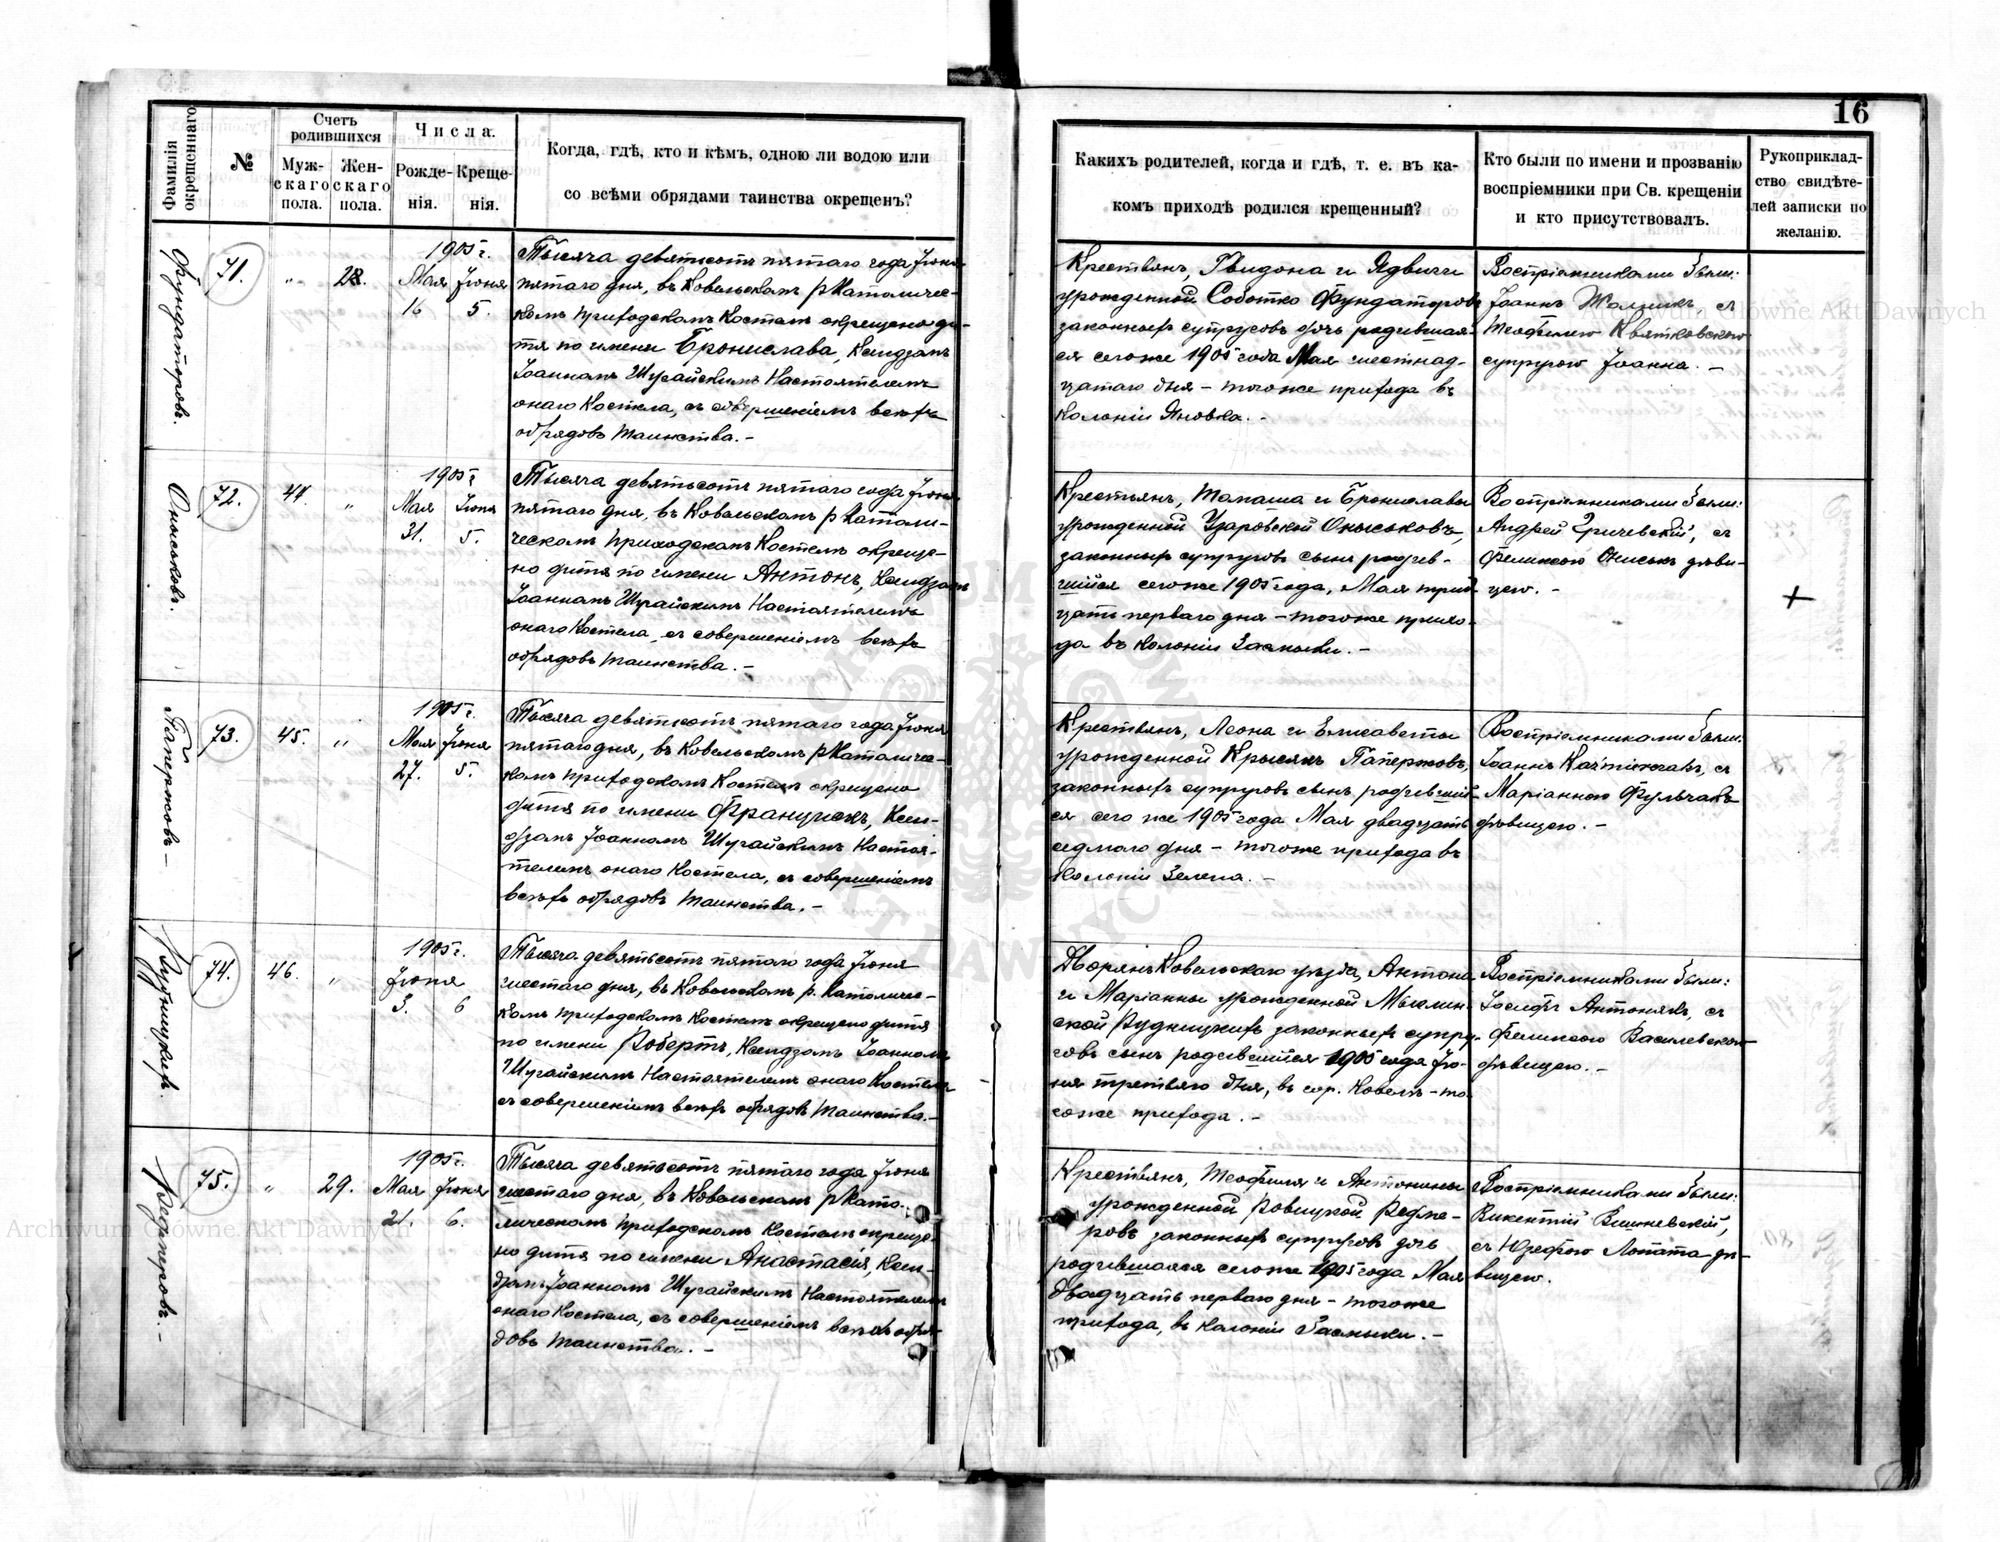 16
Фамилія окрещеннаго
№
Счетъ родившихся
Мужскаго пола.
Женскаго пола.
Числа.
Рожденія.
Крещенія.
Когда, гдѣ, кто и кѣмъ, одною ли водою или
со всѣми обрядами таинства окрещенъ?
Какихъ родителей, когда и гдѣ, т. е. въ ка-
комъ приходѣ родился крещенный?
Кто были по имени и прозванію
воспріемники при Св. крещеніи
и кто присутствовалъ.
Рукоприклад-
ство свидѣте-
лей записки по
желанію.
Фундаторовъ.
71.
"
28.
1905 г.
Мая Іюня
16 5.
Тысяча девятьсотъ пятаго года Іюня
пятаго дня, въ Ковельскомъ р Католичес-
комъ приходскомъ Костелѣ окрещено ди-
тя по имени Бронислава, Ксендзомъ
Іоанномъ Шугайскимъ Настоятелемъ
онаго Костела, съ совершеніемъ всѣхъ
обрядовъ таинства. –
Крестьянъ, Гвидона и Ядвиги
урожденной Соботко Фундаторовъ
законныхъ супруговъ дочь родившая-
ся сего же 1905 года Мая шестнад-
цатаго дня – того же прихода въ
Колоніи Яновка. –
Воспріемниками были:
Іоаннъ съ
Теофилею Квятковскою
супругою Іоанна. –
Оныськовъ.
72.
44.
"
1905 г
Мая Іюня
31. 5.
Тысяча девятьсотъ пятаго года Іюня
пятаго дня, въ Ковельскомъ р Католи-
ческомъ приходскомъ Костелѣ окреще-
но дитя по имени Антонъ, Ксендзомъ
Іоанномъ Шугайскимъ Настоятелемъ
онаго Костела, съ совершеніемъ всѣхъ
обрядовъ таинства. –
Крестьянъ, Томаша и Брониславы
урожденной Царовской Оныськовъ,
законныхъ супруговъ сынъ родив-
шійся сего же 1905 года, Мая трид-
цать перваго дня – того же прихо-
да въ колоніи Засмыки. –
Воспріемниками были:
Андрей съ
Феликсою Онысько дѣви-
цею. –
+
Папержовъ –
73.
45.
"
1905 г.
Мая Іюня
27. 5.
Тысяча девятьсотъ пятаго года Іюня
пятаго дня, въ Ковельскомъ р Католичес-
комъ приходскомъ Костелѣ окрещено
дитя по имени Францискъ, Ксен-
дзомъ Іоанномъ Шугайскимъ Настоя-
телемъ онаго Костела, съ совершеніемъ
всѣхъ обрядовъ таинства. –
Крестьянъ, Леона и Елисаветы
урожденной Крысякъ Папержовъ,
законныхъ супруговъ сынъ, родившій-
ся сего же 1905 года Мая двадцать
седмаго дня – того же прихода въ
Колоніи Зелена. –
Воспріемниками были:
Іоаннъ Kaźmierzakъ, съ
Маріанною Фульчакъ
дѣвицею. –
Рудницкихъ.
74.
46.
"
1905 г.
Іюня
3. 6
Тысяча девятьсотъ пятаго года Іюня
шестаго дня, въ Ковельскомъ р. Католичес-
комъ приходскомъ Костелѣ окрещено дитя
по имени Робертъ, Ксендзомъ Іоанномъ
Шугайскимъ Настоятелемъ онаго Костела
съ совершеніемъ всѣхъ обрядовъ таинства. –
Дворянъ Ковельскаго уѣзда, Антона
и Маріанны урожденной Мыслин-
ской Рудницкихъ законныхъ супру-
говъ сынъ родившійся 1905 года Ію-
ня третьяго дня, въ гор. Ковелѣ – то-
гоже прихода. –
Воспріемниками были:
Іосифъ Антонякъ, съ
Феликсою Василевскою
дѣвицею. –
Редмеровъ. –
75.
"
29.
1905 г.
Мая Іюня
21. 6.
Тысяча девятьсотъ пятаго года Іюня
шестаго дня, въ Ковельскомъ р Като-
лическомъ приходскомъ Костелѣ окреще-
но дитя по имени Анастасія, Ксен-
дзомъ Іоанномъ Шугайскимъ Настоятелемъ
онаго Костела, съ совершеніемъ всѣхъ обря-
довъ таинства. –
Крестьянъ, Теофиля и Антонины
урожденной Ровицкой Редме-
ровъ законныхъ супруговъ дочь
родившаяся сего же 1905 года Мая
двадцать перваго дня – того же
прихода, въ колоніи Засмыки. –
Воспріемниками были:
Викентій Вишневскій,
съ Юзефою Лопата дѣ-
вицею.
Archiwum Główne Akt Dawnych
Archiwum Główne Akt Dawnych